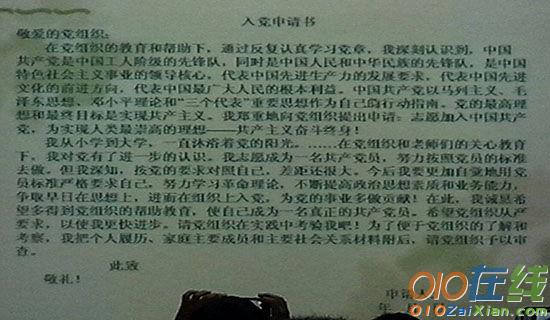 入党申请书
敬爱的党组织:
在党组织的教育和帮助下，通过反复认真学习党章，我深刻认识到，中国
共产党是中国工人阶级的先锋队，同时是中国人民和中华民族的先锋队，是中国
特色社会主义事业的领导核心，代表中国先进生产力的发展要求，代表中国先进
文化的前进方向，代表中国最广大人民的根本利益。中国共产党以马列主义、毛
泽东思想、邓小平理论和“三个代表”重要思想作为自己的行动指南。党的最高理
想和最终目标是实现共产主义。我郑重地向党组织提出申请：志愿加入中国共产
党，为实现人类最崇高的理想——共产主义奋斗终身！
我从小学到大学，一直沐浴着党的阳光。……在党组织和老师们的关心教育
下，我对党有了进一步的认识。我志愿成为一名共产党员，努力按照党员的标准
去做。但我深知，按党的要求对照自己，差距还很大。今后我要更加自觉地用党
员标准严格要求自己，努力学习革命理论，不断提高政治思想素质和业务能力，
争取早日在思想上，进而在组织上入党，为党的事业多做贡献！在此，我诚恳希
望多得到党组织的帮助教育，使自己成为一名真正的共产党员。希望党组织从严
要求，以使我更快进步。请党组织在实践中考验我吧！为了便于党组织的了解和
考察，我把个人履历、家庭主要成员和主要社会关系材料附后，请党组织予以审
查。
此致
敬礼！
申请
年
010在线
010ZaiXian.com